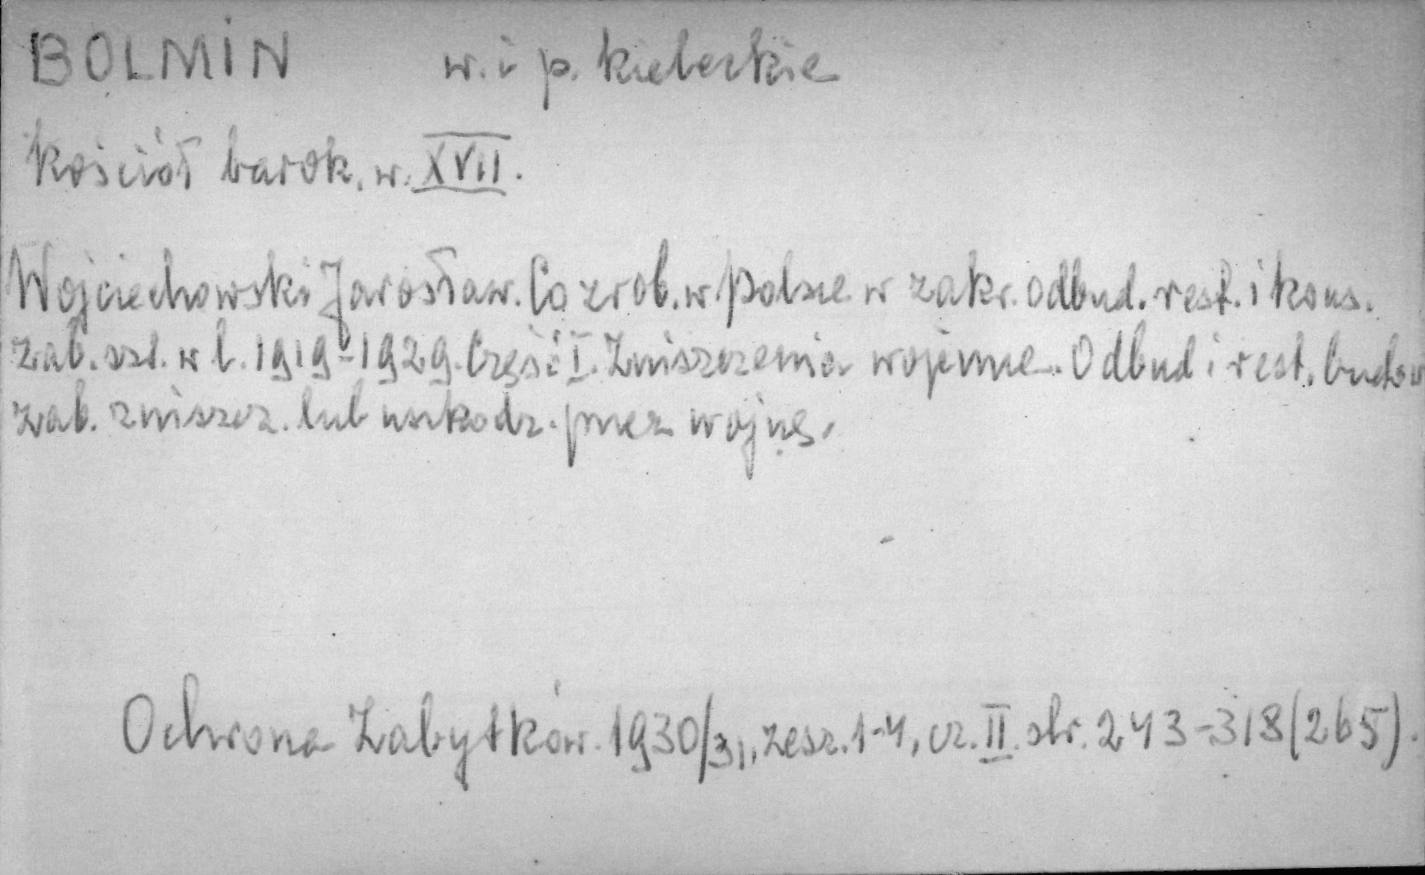 BOLMIN w. i p. kieleckie
Kościół barok. w. XVII.
Wojciechowski Jarosław. Co zrob. w Polsce w zakr. odbud. rest. i kons.
zab. szt. w l. 1919-1929. Część I. Zniszczenia wojenne. Odbud i rest. budow
zab. zniszcz. lub uszkodz. przez wojnę.
Ochrona Zabytków. 1930/31, zesz. 1-4, cz. II. str. 243-318 (265).